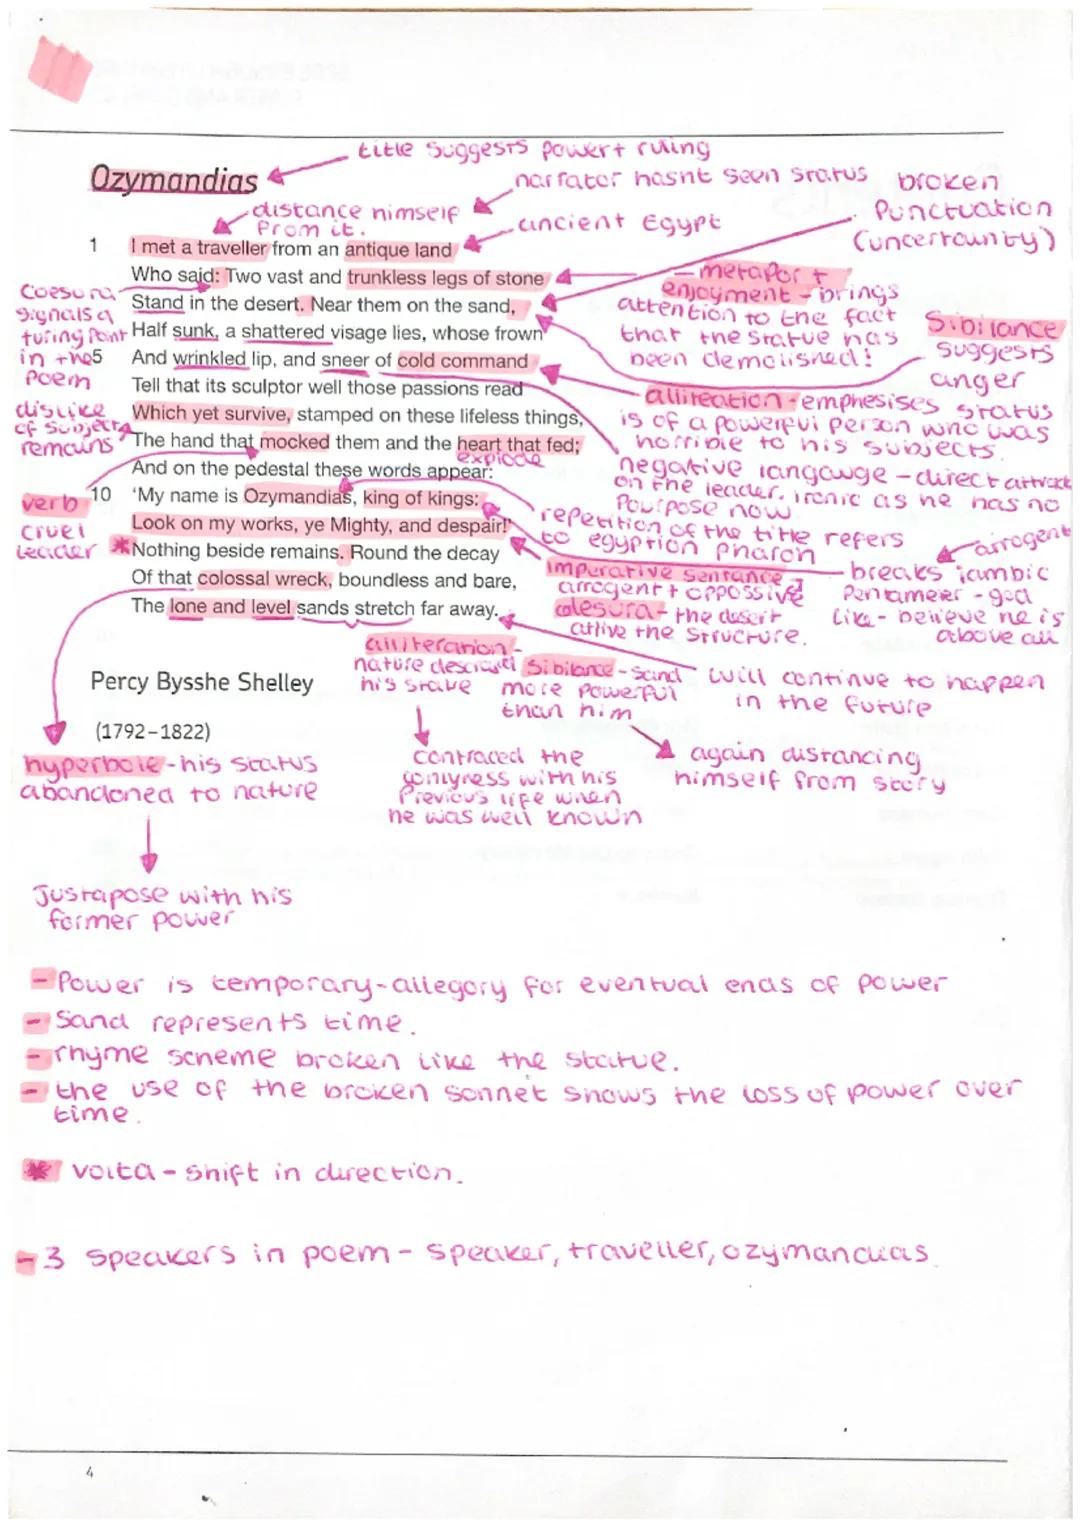 title suggests power + ruling
Ozymandias
narrator hasnt seen status
broken
Punctuation
(uncertainty)
distance himself
from it.
ancient Egypt
1 I met a traveller from an antique land
Who said: Two vast and trunkless legs of stone
Stand in the desert. Near them on the sand,
Half sunk, a shattered visage lies, whose frown
5 And wrinkled lip, and sneer of cold command
Tell that its sculptor well those passions read
Which yet survive, stamped on these lifeless things,
The hand that mocked them and the heart that fed;
And on the pedestal these words appear:
10 'My name is Ozymandias, king of kings:
Look on my works, ye Mighty, and despair!'
*Nothing beside remains. Round the decay
Of that colossal wreck, boundless and bare,
The lone and level sands stretch far away.
explode
Coesura
signals a
turing point
in the
Poem
dislike
of subjects
remains
verb
cruel
leader
metapor +
enjoyment - brings
attention to the fact
that the statue has
been demolished!
Sibilance
suggests
anger
alliteation - emphesises status
is of a powerful person who was
horrible to his subjects.
negative langauge - direct attack
on the leader. ironic as he has no
Pourpose now
repetition of the title refers
to egyption pharoh
arrogent
imperative sentance
arrogent + oppossive
breaks iambic
Pentameter - god
like - believe he is
above all
Coesura - the desert
outlive the structure.
Percy Bysshe Shelley
(1792–1822)
alliteration -
nature descroyed
his statue
Sibilance - sand
more powerful
than him
will continue to happen
in the future
again distancing
himself from story
contraced the
lonlyness with his
Previous life when
he was well known
hyperbole - his status
abandoned to nature
Justapose with his
former power
- Power is temporary - allegory for eventual ends of power
- Sand represents time.
- rhyme scheme broken like the statue.
- the use of the broken sonnet shows the loss of power over
time.
* volta - shift in direction.
- 3 speakers in poem - speaker, traveller, ozymandias
4